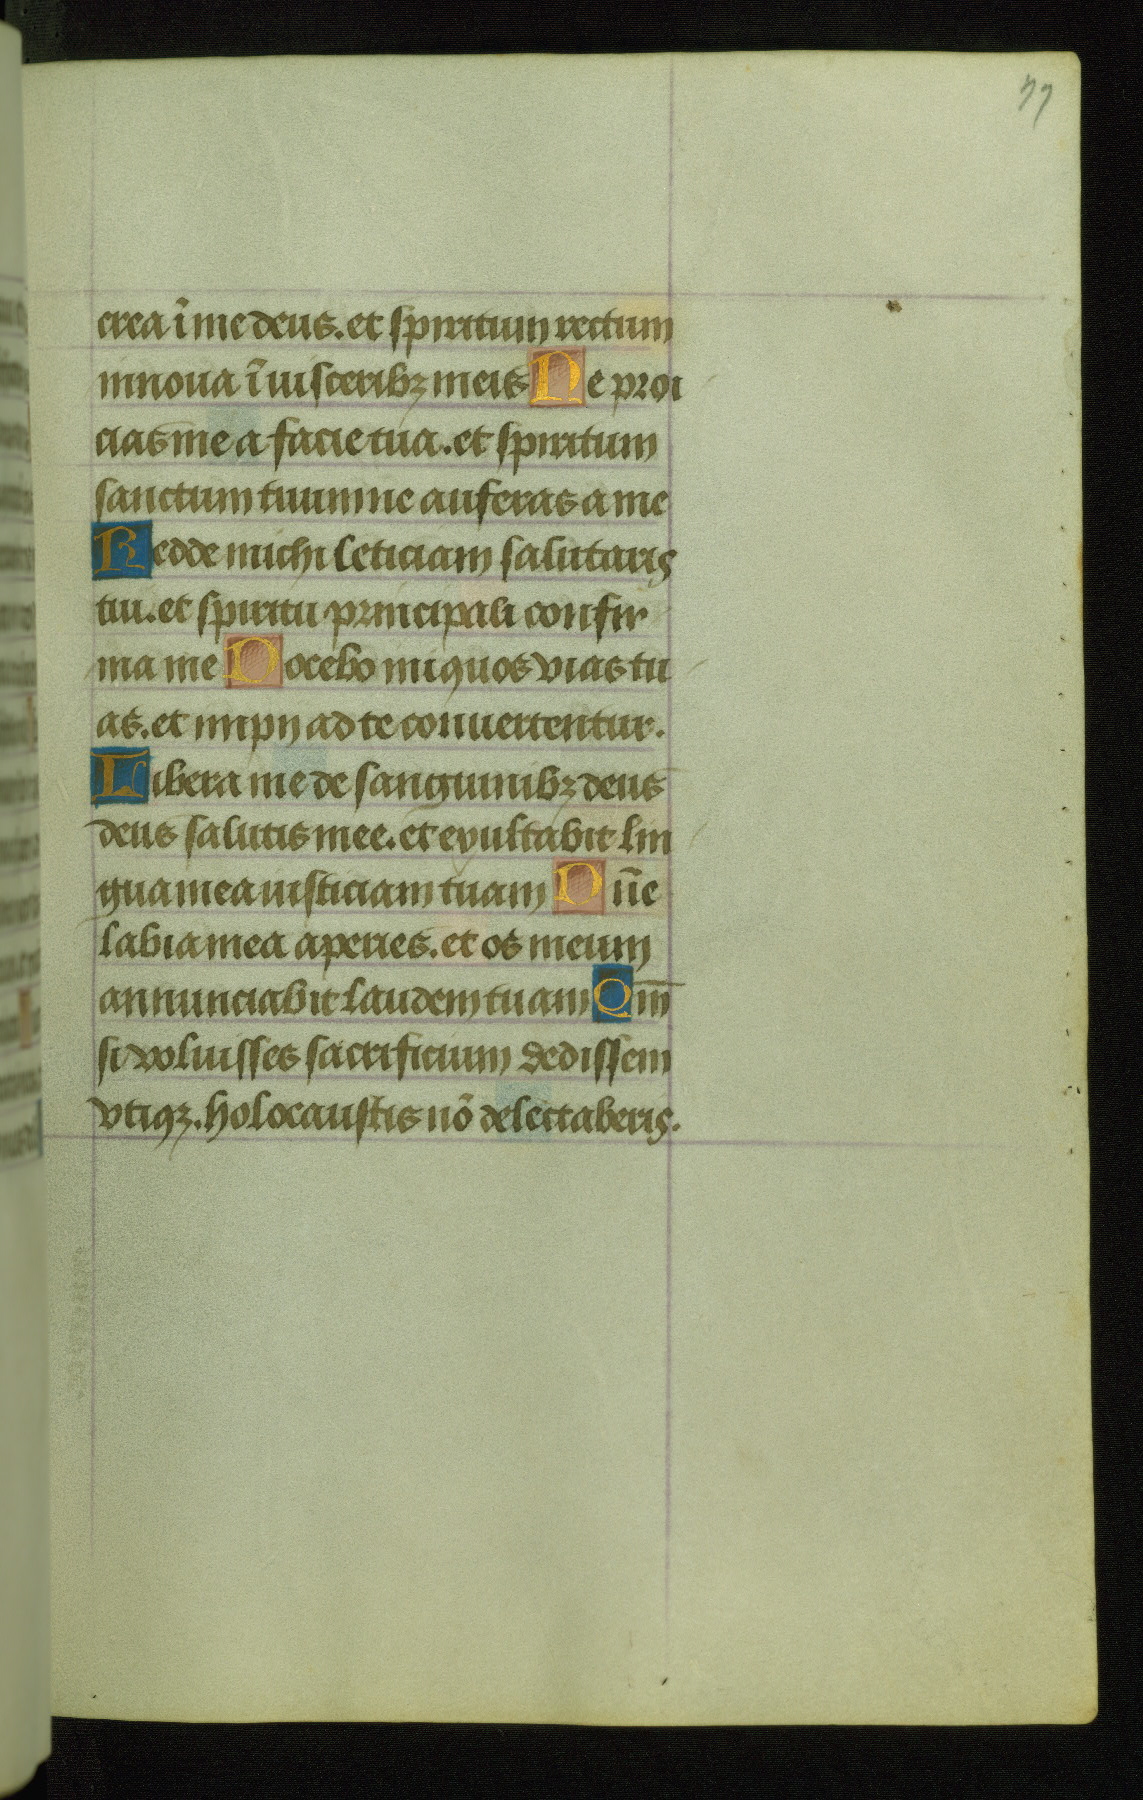 77
crea ĩ me deus. et spiritum rectum
innova ĩ visceribꝫ meis Ne proi
cias me a facie tua. et spiritum
sanctum tuum ne auferas a me
Redde michi leticiam salutaris
tui. et spiritu principali confir
ma me Docebo iniquos vias tu
as. et impij ad te convertentur.
Libera me de sanguinibꝫ deus
deus salutis mee. et exultabit lin
gua mea iusticiam tuam Dñe
labia mea aperies. et os meum
annunciabit laudem tuam Qm̃
si voluisses sacrificium dedissem
vtiqꝫ. holocaustis nõ delectaberis.